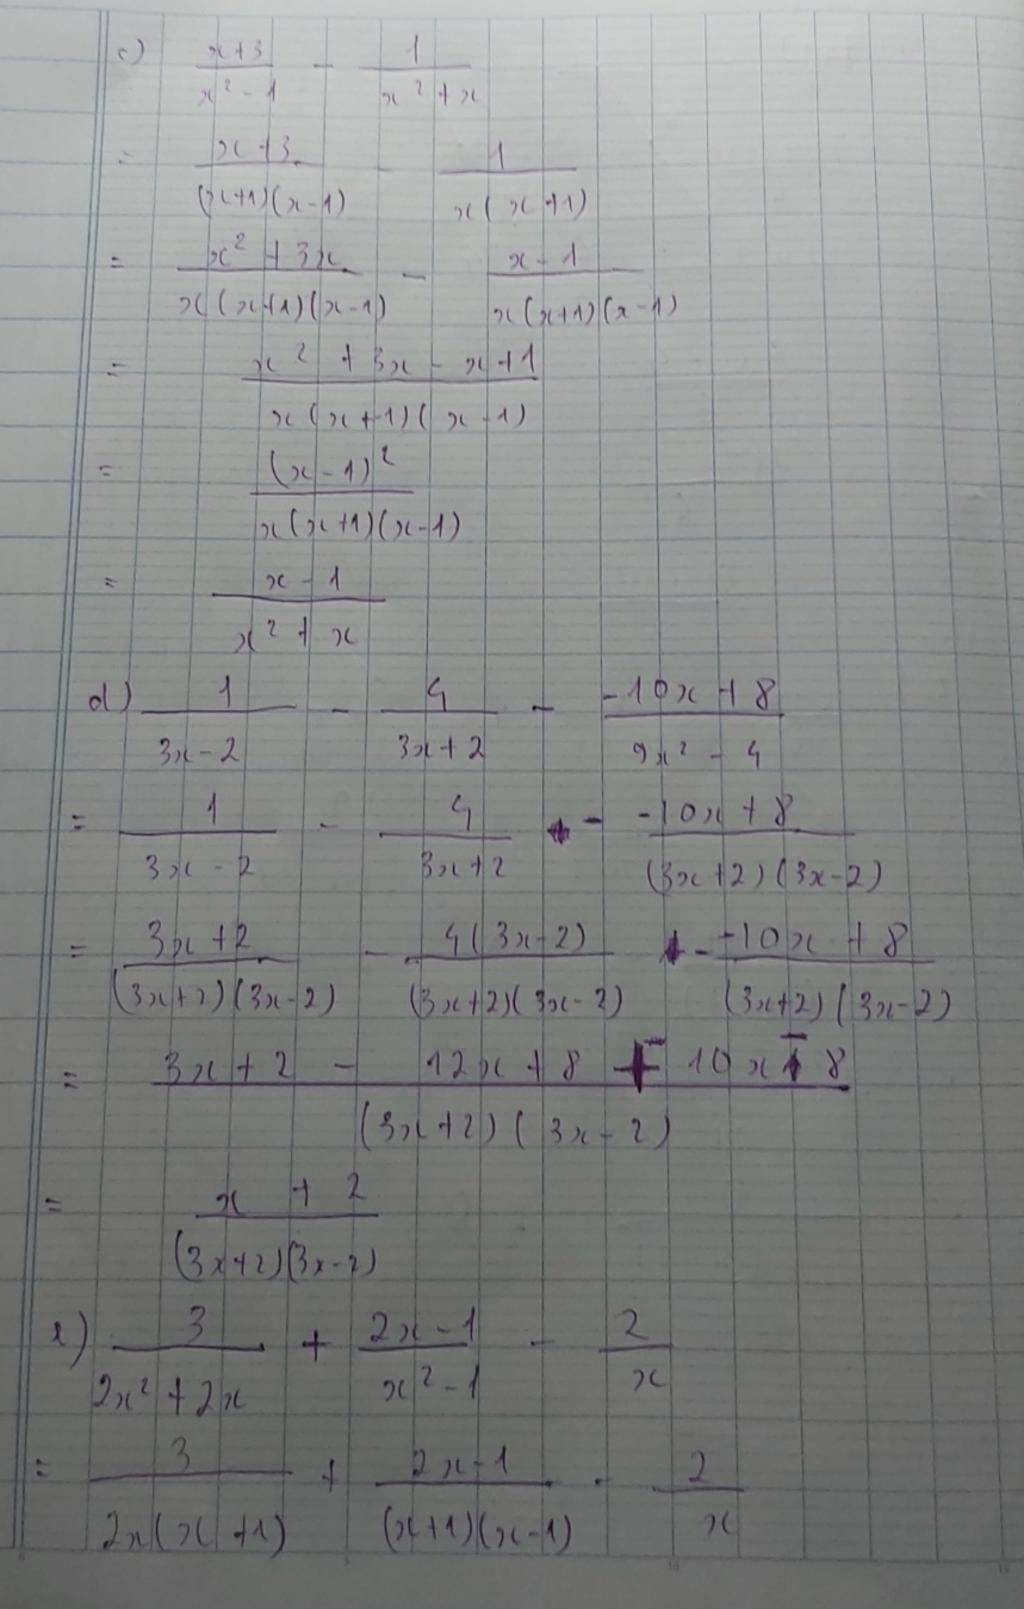 c) (x+3)/(x² - 1) - 1/(x² + x)
= (x+3)/((x+1)(x-1)) - 1/(x(x+1))
= (x² + 3x)/(x(x+1)(x-1)) - (x-1)/(x(x+1)(x-1))
= (x² + 3x - x + 1)/(x(x+1)(x-1))
= (x-1)²/(x(x+1)(x-1))
= (x-1)/(x² + x)
d) 1/(3x-2) - 4/(3x+2) - (-10x + 8)/(9x² - 4)
= 1/(3x-2) - 4/(3x+2) - (-10x + 8)/((3x+2)(3x-2))
= (3x+2)/((3x+2)(3x-2)) - 4(3x-2)/((3x+2)(3x-2)) - (-10x + 8)/((3x+2)(3x-2))
= (3x + 2 - 12x + 8 + 10x - 8)/((3x+2)(3x-2))
= (x + 2)/((3x+2)(3x-2))
e) 3/(2x² + 2x) + (2x-1)/(x² - 1) - 2/x
= 3/(2x(x+1)) + (2x-1)/((x+1)(x-1)) - 2/x